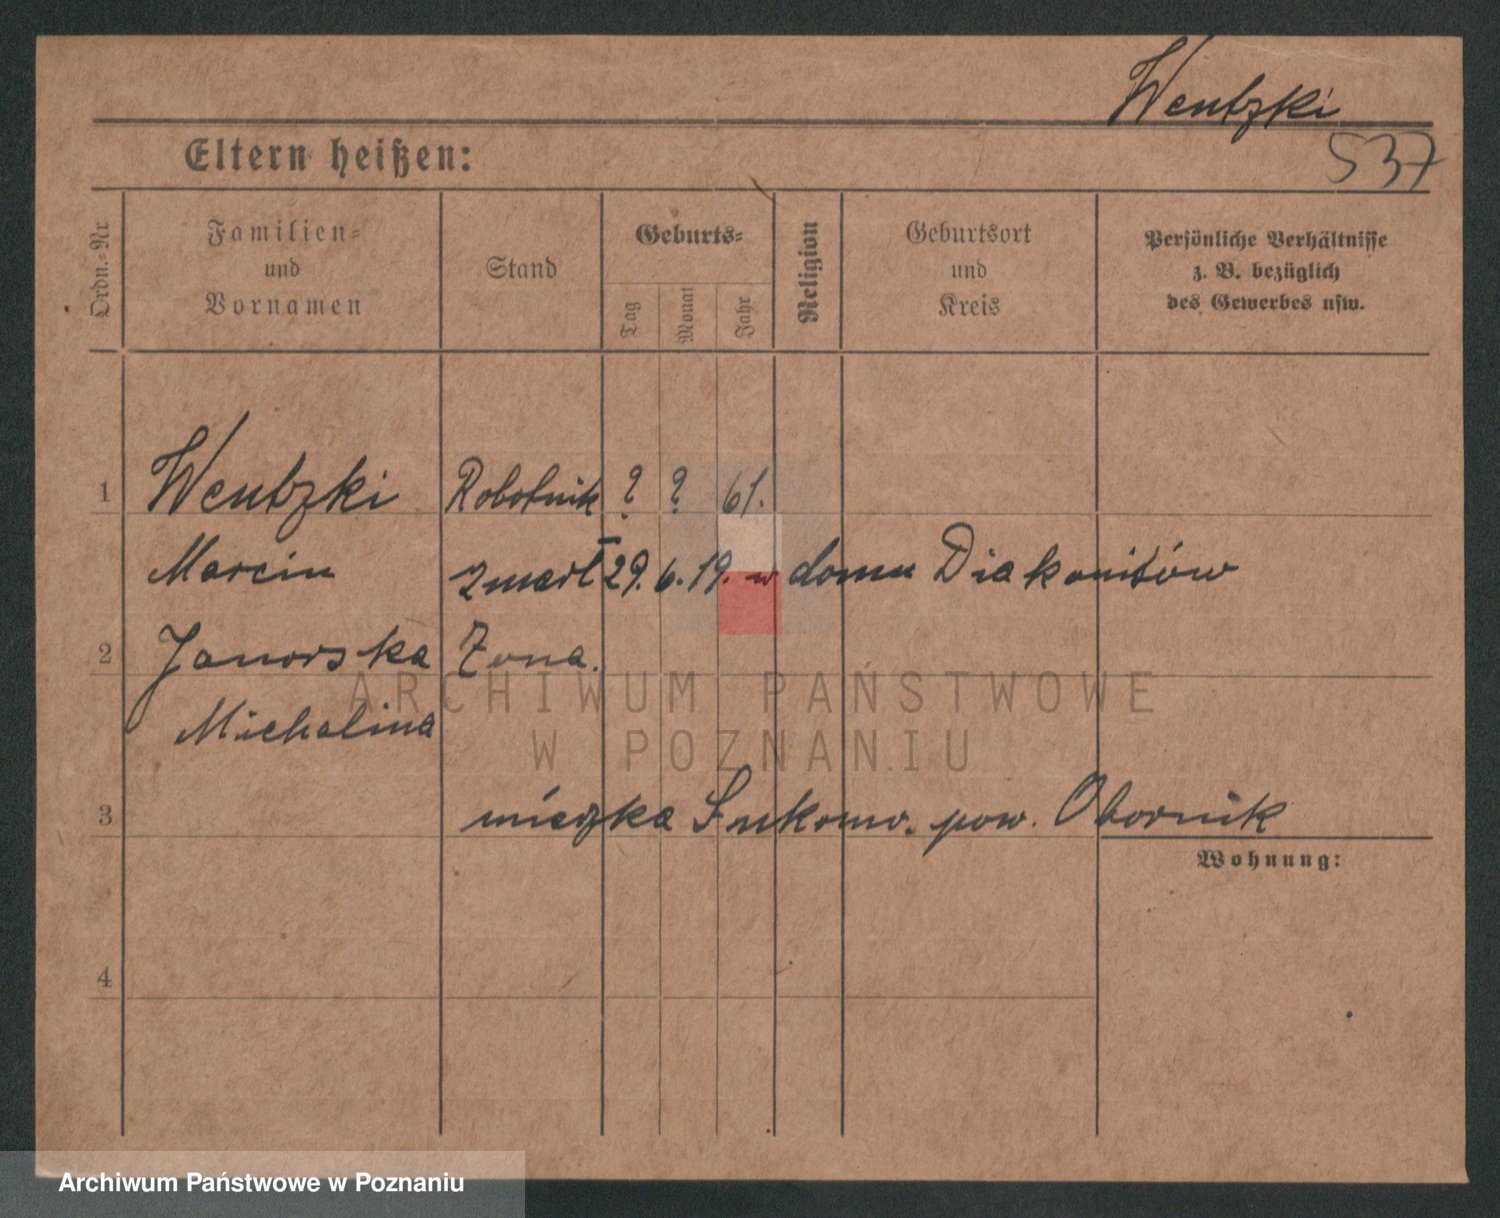 Wentzki
537
Eltern heißen:
Ordn.-Nr
Familien-
und
Vornamen
Stand
Geburts-
Tag
Monat
Jahr
Religion
Geburtsort
und
Kreis
Persönliche Verhältnisse
z. B. bezüglich
des Gewerbes usw.
1 Wentzki Robotnik ? ? 61.
Marcin zmarł 29. 6. 19. w domu Diakonisów
2 Janowska Żona.
Michalina
ARCHIWUM PAŃSTWOWE
W POZNANIU
3 mieszka pow. Obornik
Wohnung:
4
Archiwum Państwowe w Poznaniu